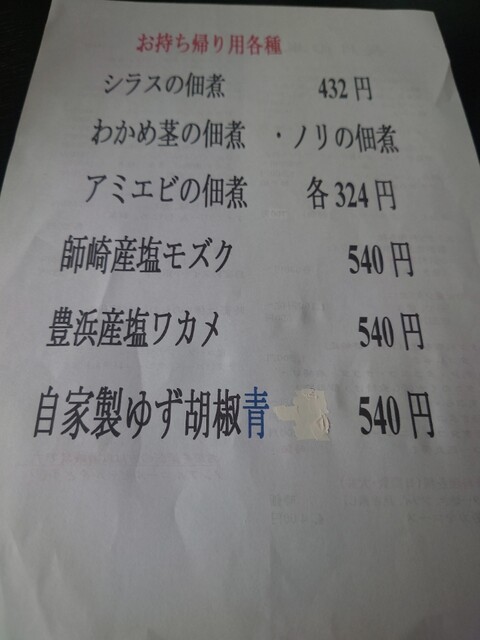 お持ち帰り用各種
シラスの佃煮 432円
わかめ茎の佃煮 ・ノリの佃煮
アミエビの佃煮 各324円
師崎産塩モズク 540円
豊浜産塩ワカメ 540円
自家製ゆず胡椒青 540円